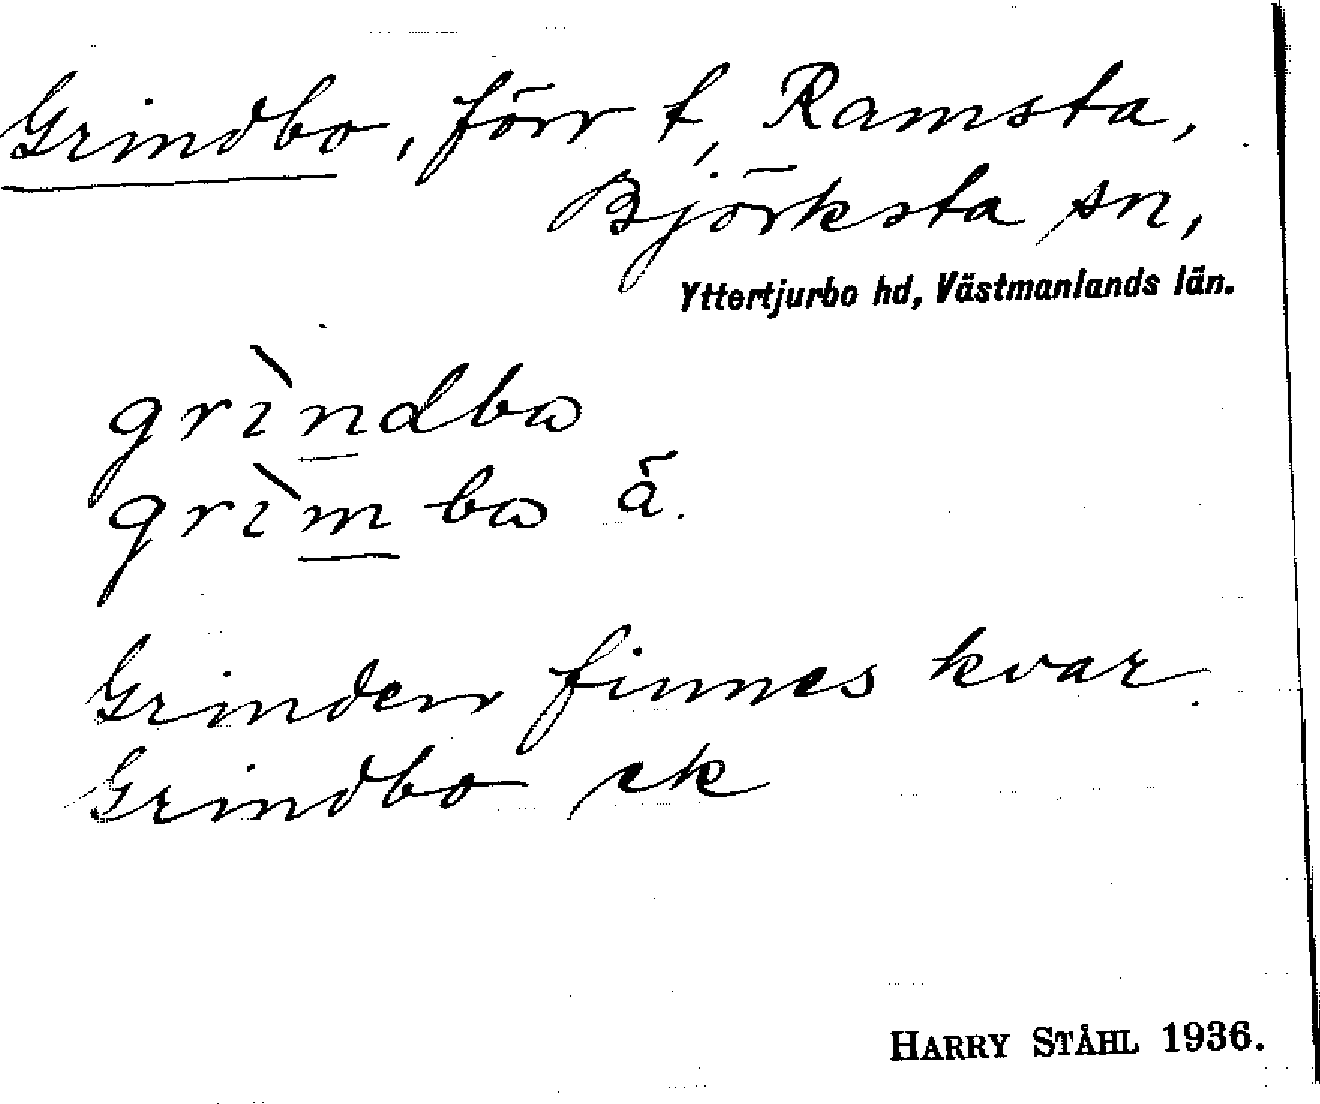 Grindbo, förr t, Ramsta,
Björksta sn,
Yttertjurbo hd, Västmanlands län.
grìndbω
grìmbω ä.
Grinden finnes kvar.
Grindbo ek
HARRY STÅHL 1936.